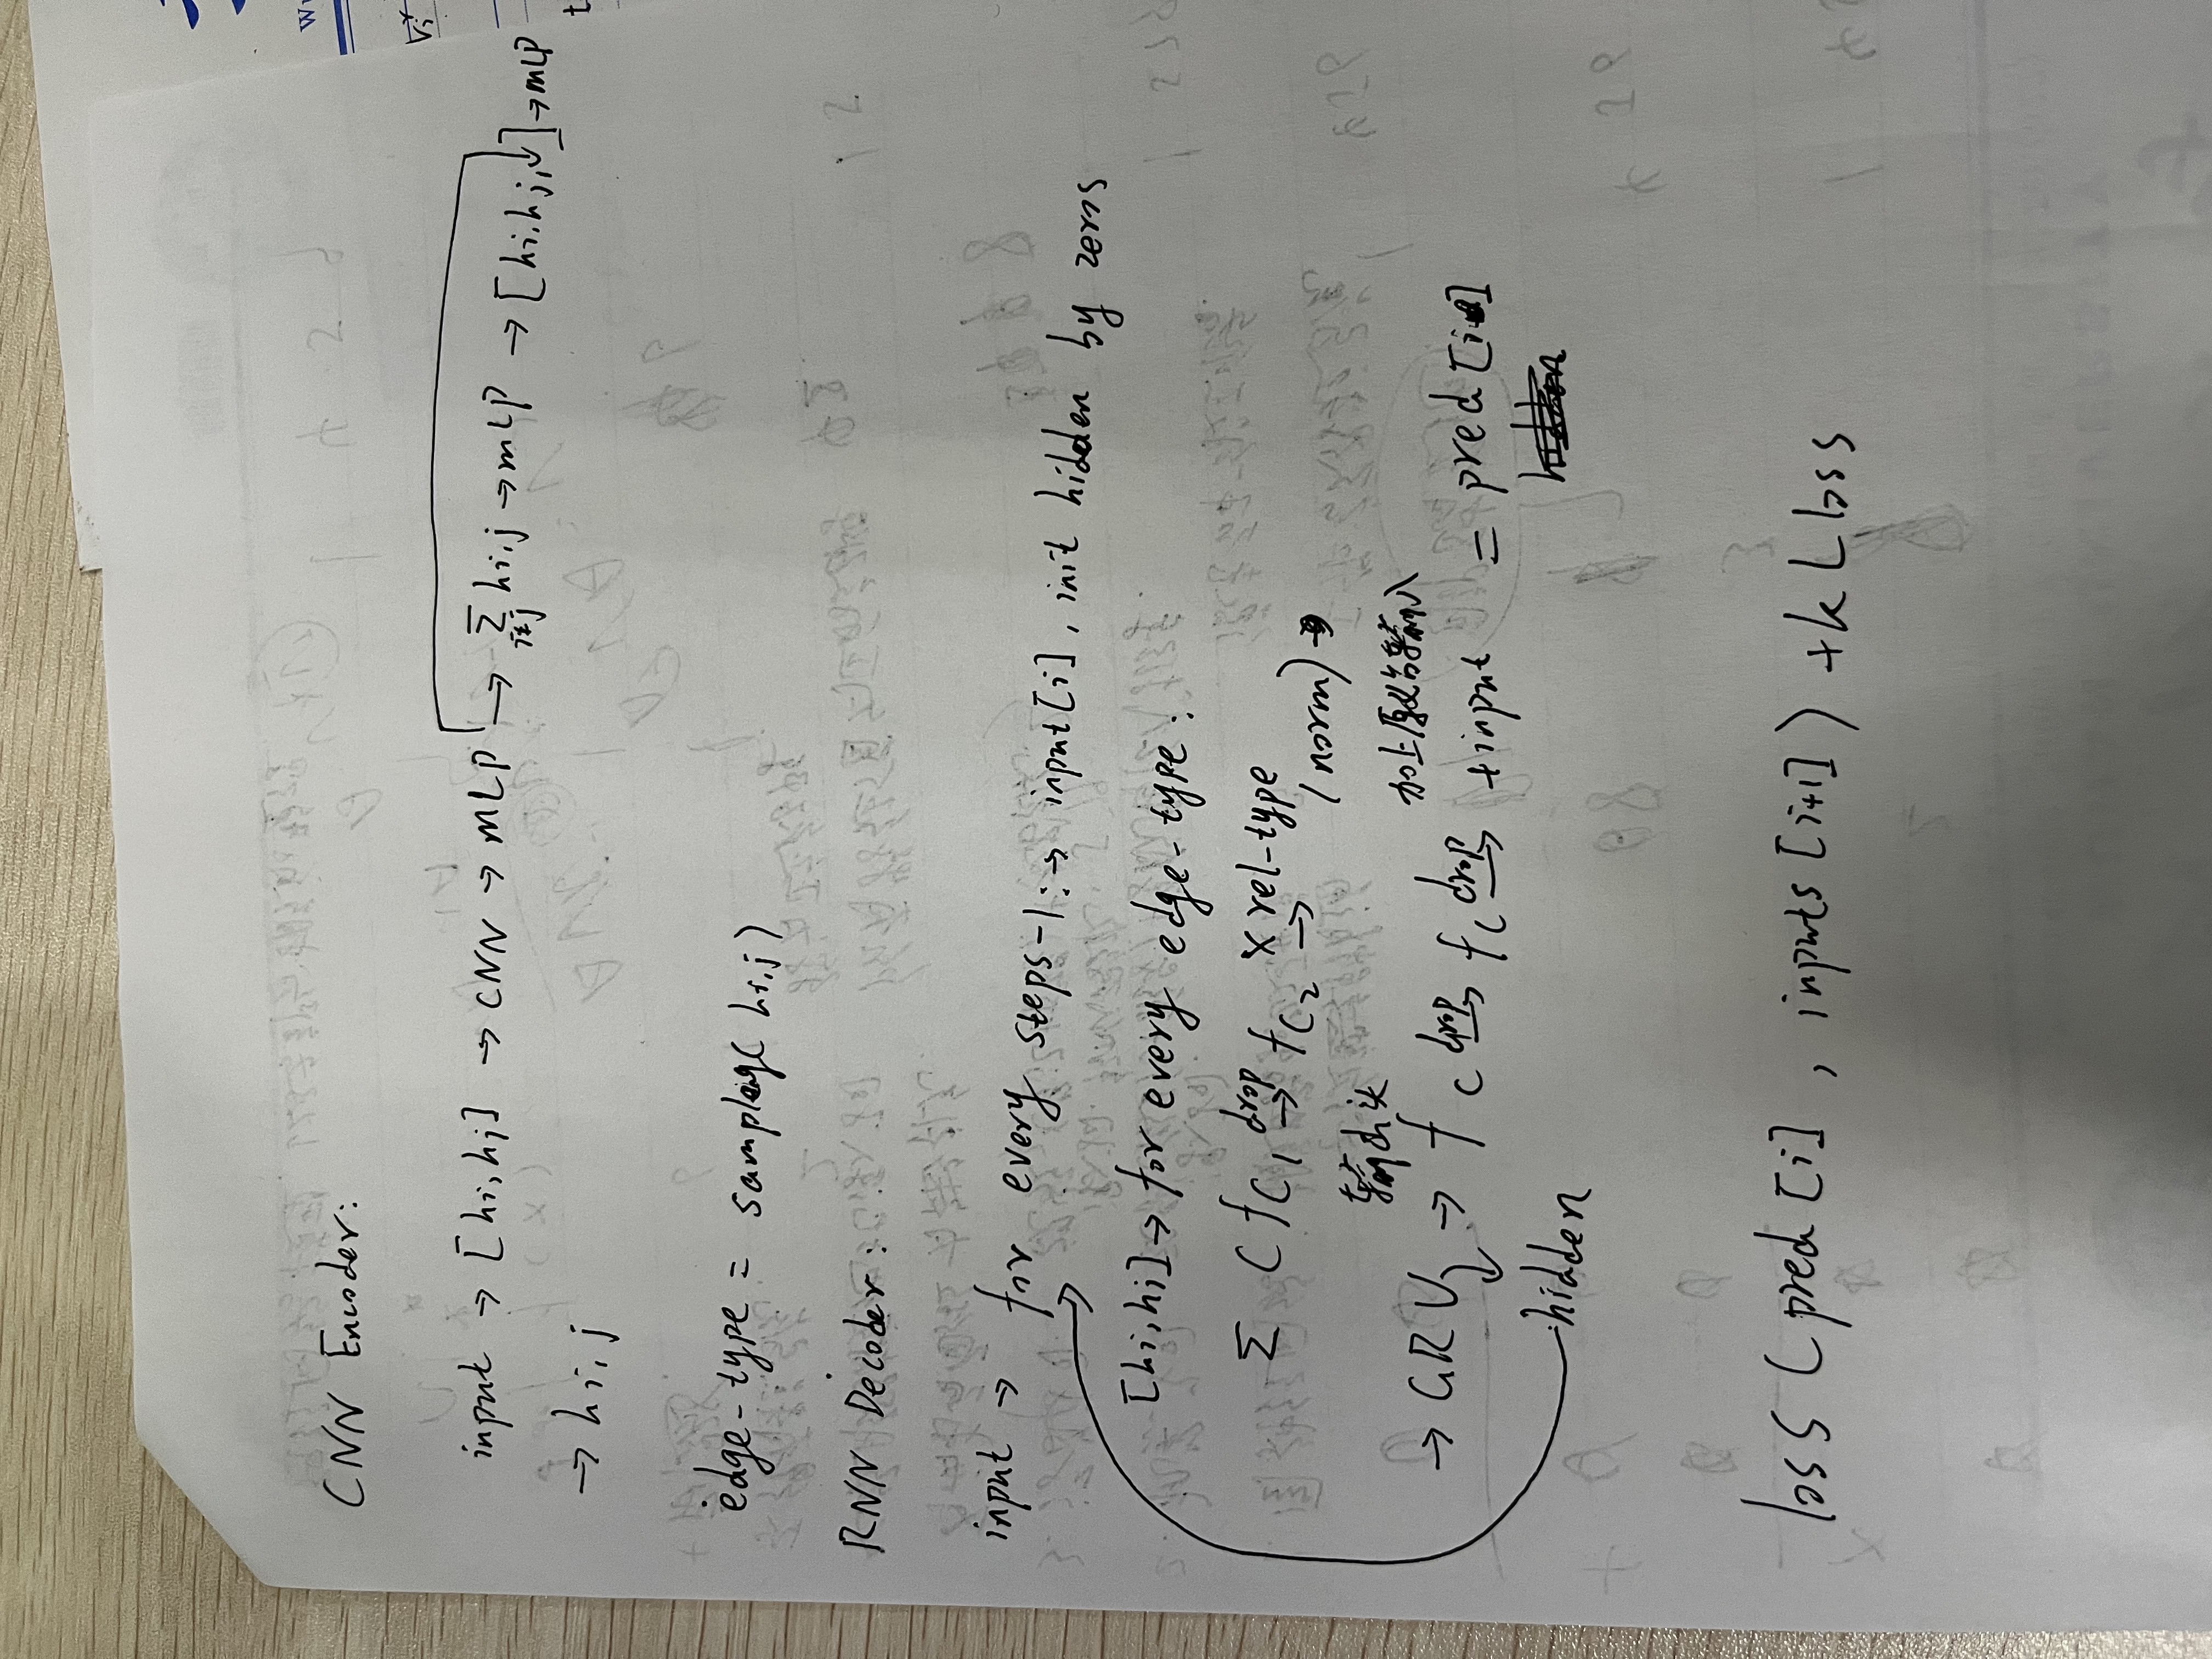 CNN Encoder:
input → [hi, hj] → CNN → MLP → Σ i≠j hi,j → MLP → [hi, hj, ] → MLP
→ hi,j
edge-type = sampleing( hi,j)
RNN Decoder:
input → for every steps-1: → input[i], init hidden by zeros
[hi, hj] → for every edge-type:
Σ ( fc1 drop→ fc2 × rel-type →
(norm) →
输出头
加上原始输入
→ GRU → fc drop→ fc drop→ +input = pred [i]
hidden
loss (pred [i], inputs [i+1]) + KL loss